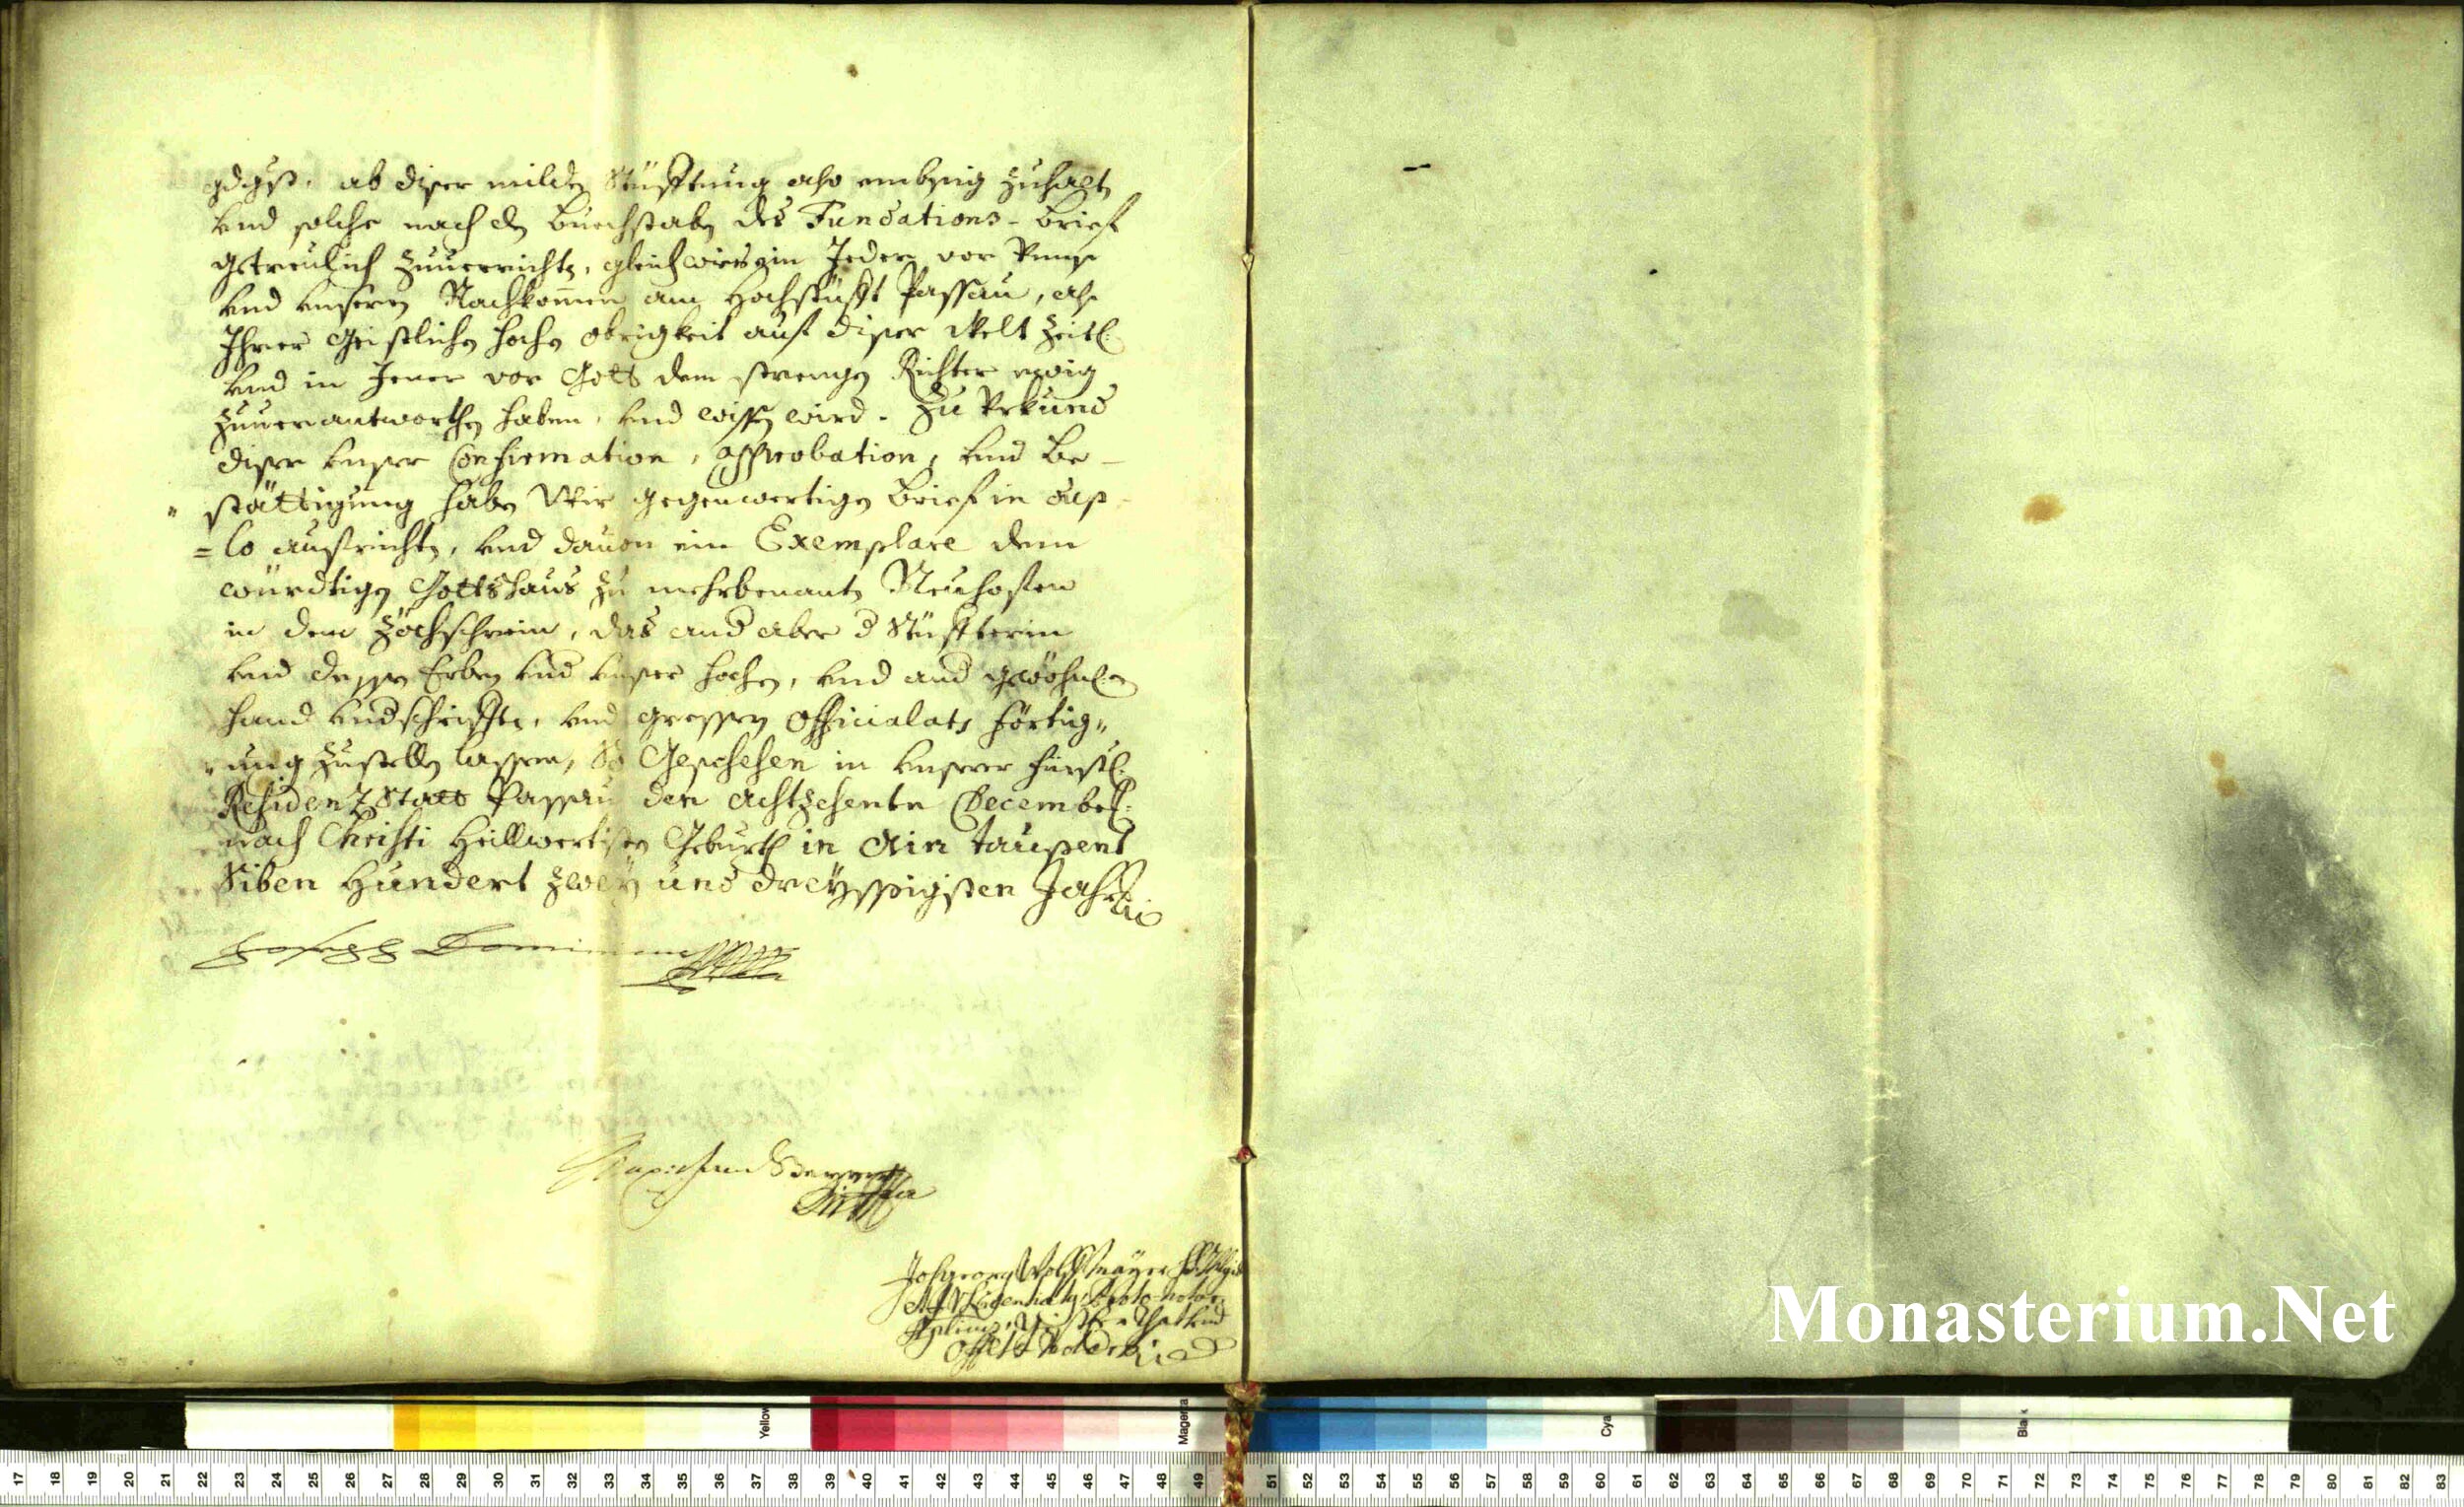 gdgst. ab diser milden Stüfftung also embsig zuhalten
vnd solche nach den Buechstaben des Fundations-Brief
getreulich zuuerrichten, gleichwie es ein Jeder vor Vnns
vnd vnseren Nachkommen am Hochstüfft Passau, als
Ihrer Geistlichen hochen obrigkeit auf diser Welt zeitl:
vnd in Jener vor Gott dem strengen Richter ewig
zuuerantworthen haben, vnd wissen wird. Zu Vrkund
diser vnser Confirmation, Approbation, vnd Be-
stättigung haben Wir gegenwertigen Brief in dup-
=lo ausfrichten, vnd dauon ein Exemplare dem
würdtigen Gottshaus zu mehrbenanten Neuhofen
in dem Zöchschrein, das and aber d Stüffterin
vnd dessen Erben vnd vnser hochen, vnd and gewöhnl:
hand vndschrifften, vnd grossen Officialats förtig-
ung zustellen lassen, So Geschehen in vnserer fürstl:
Residenz Statt Passau den achtzehenten Decembr:
nach Christi Heillwertisten Geburth in Ain taussent
Siben Hundert zwey und dreyssigisten Jahr
Joseph Dominicus
Joh: Georg Wolff Mayr
Licentiatus, Proto-notar:
Offlts Notarius
Monasterium.Net
Yellow
Magenta
Cya
Black
17 18 19 20 21 22 23 24 25 26 27 28 29 30 31 32 33 34 35 36 37 38 39 40 41 42 43 44 45 46 47 48 49 51 52 53 54 55 56 57 58 59 60 61 62 63 64 65 66 67 68 69 70 71 72 73 74 75 76 77 78 79 80 81 82 83